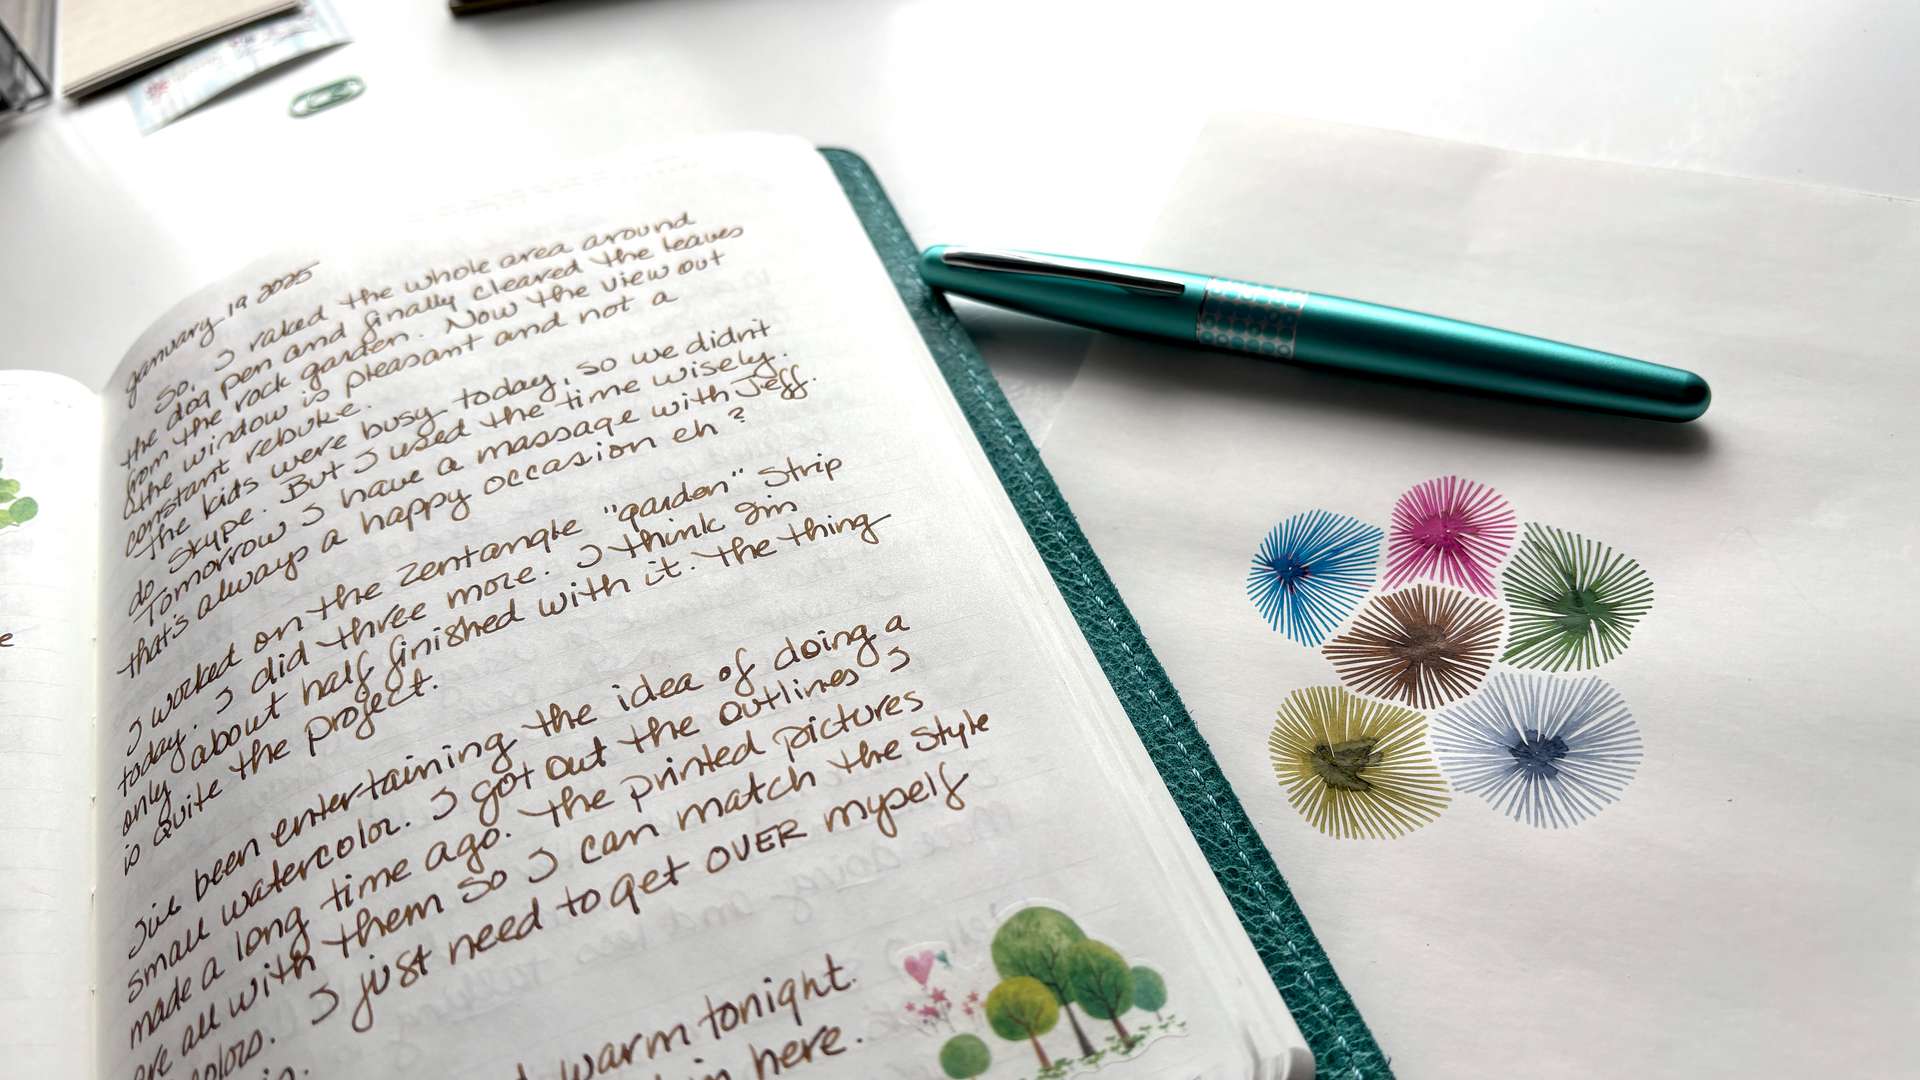 January 19 2025
So, I raked the whole area around
the dog pen and finally cleared the leaves
from the rock garden. Now the view out
the window is pleasant and not a
constant rebuke.
The kids were busy today, so we didn't
do Skype. But I used the time wisely.
Tomorrow I have a massage with Jeff.
that's always a happy occasion eh?
I worked on the zentangle "garden" strip
today. I did three more. I think Im
only about half finished with it. The thing
is quite the project.
I've been entertaining the idea of doing a
small watercolor. I got out the outlines I
made a long time ago. The printed pictures
are all with them so I can match the style
colors. I just need to get OVER myself
warm tonight.
in here.